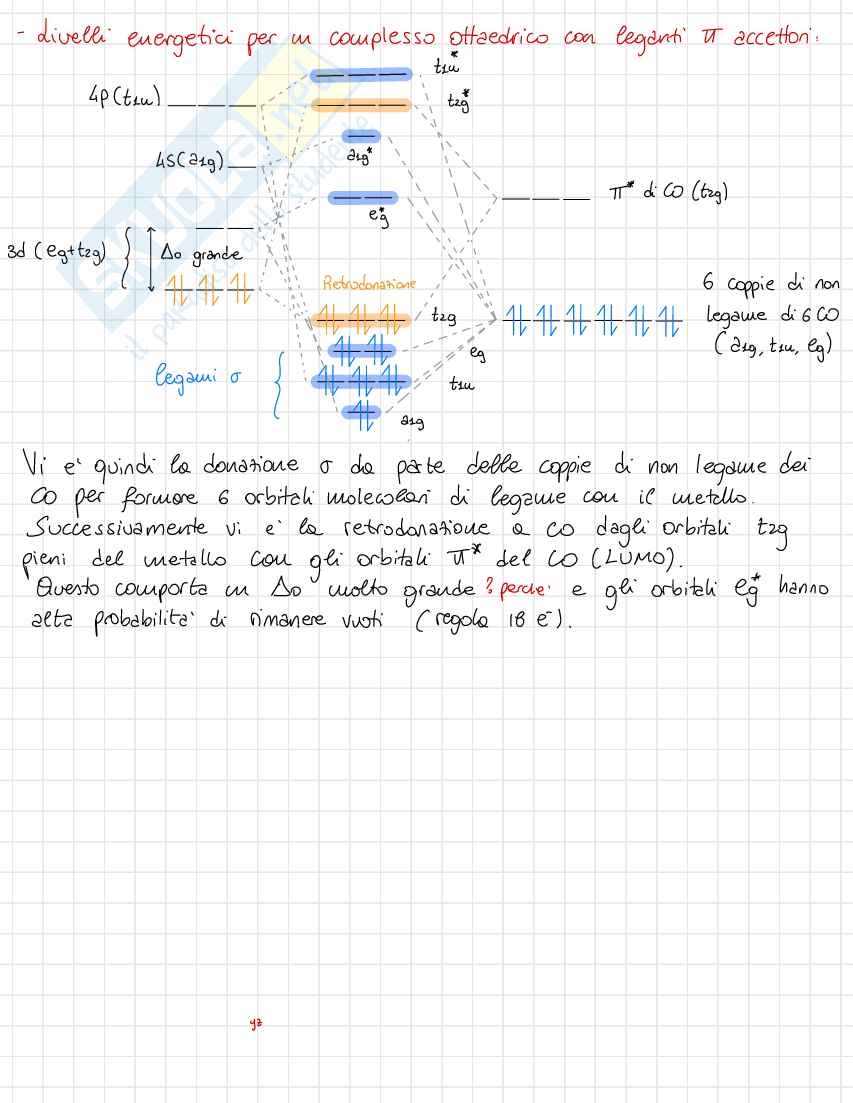 - Livelli energetici per un complesso ottaedrico con leganti π accettori:
t1u*
4p (t1u)
t2g*
4s (a1g)
a1g*
π* di CO (t2g)
eg*
3d (eg+t2g)
Δo grande
Retrodonazione
6 coppie di non
legame di 6 CO
(a1g, t1u, eg)
t2g
eg
legami σ
t1u
a1g
SKUOLA.net
il paradiso dello studente
Vi e' quindi la donazione σ da parte delle coppie di non legame dei
CO per formare 6 orbitali molecolari di legame con il metallo.
Successivamente vi e' la retrodonazione a CO dagli orbitali t2g
pieni del metallo con gli orbitali π* del CO (LUMO).
Questo comporta un Δo molto grande ? perche' e gli orbitali eg* hanno
alta probabilita' di rimanere vuoti (regola 18 e⁻).
yz